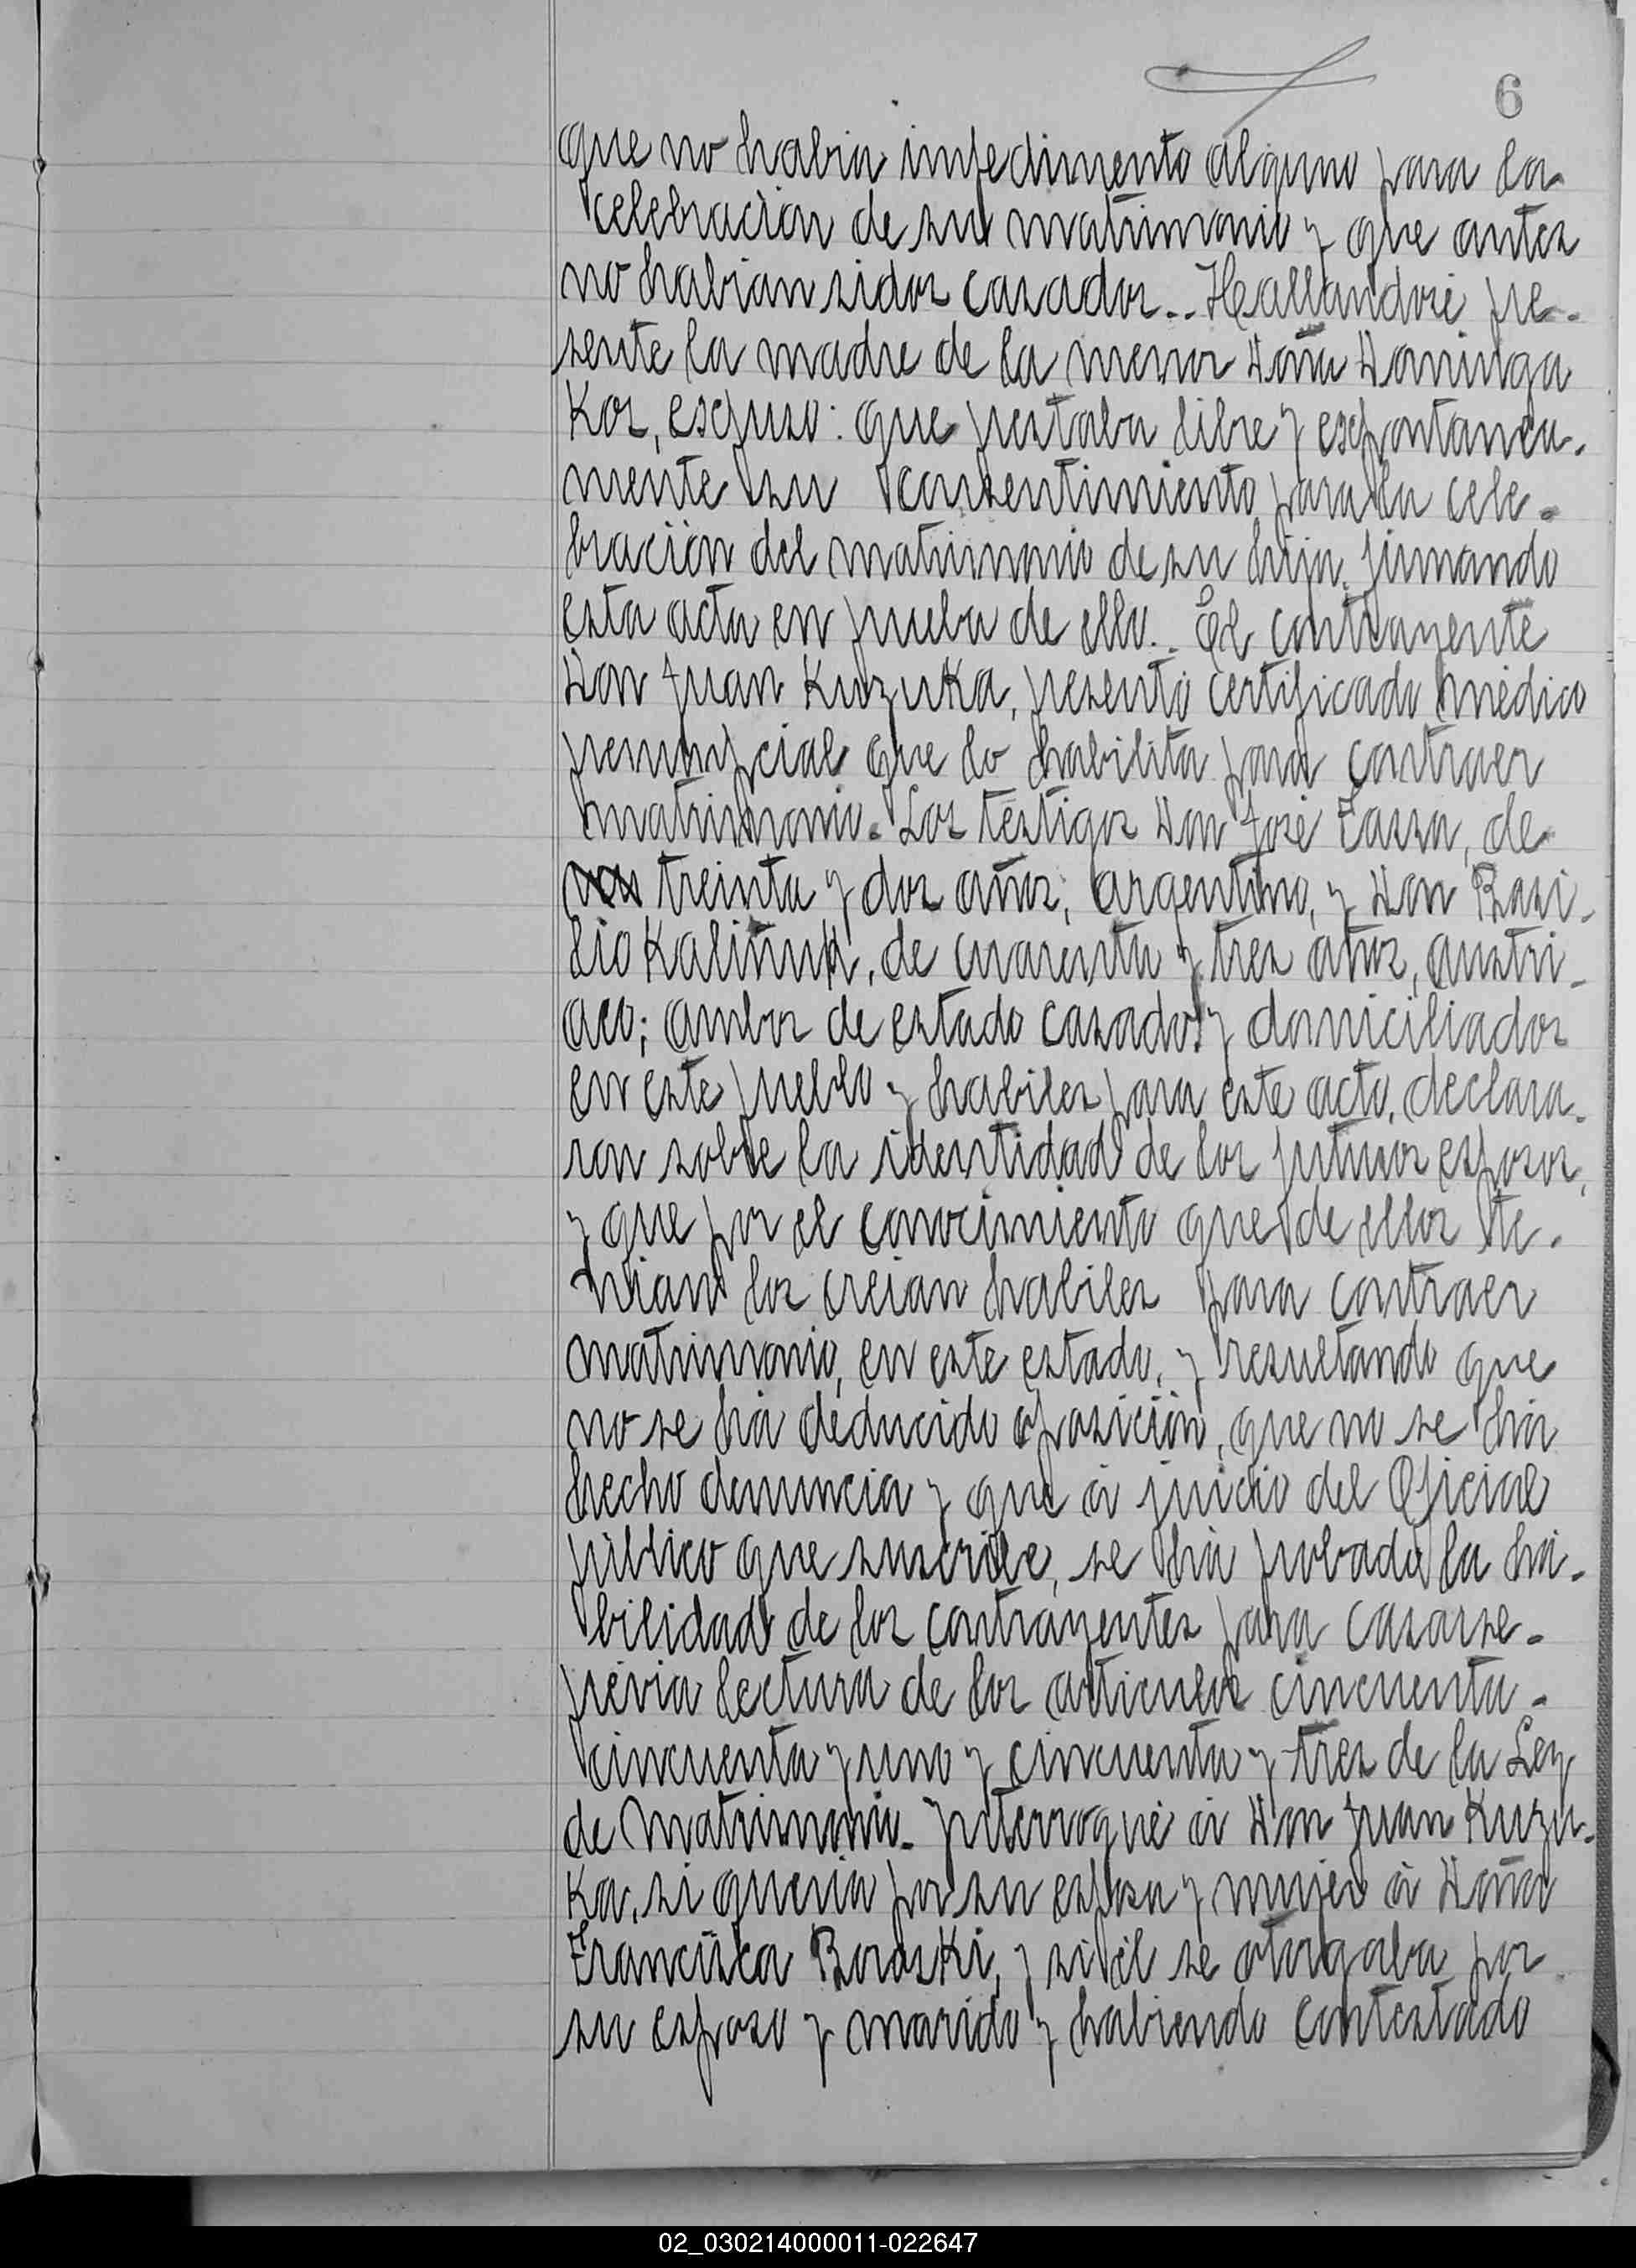 6
que no habia impedimento alguno para la
celebración de su matrimonio y que antes
no habian sidos casados.. Hallandose pre-
sente la madre de la menor Doña Dominga
Kos, expuso: que prestaba libre y espontanea-
mente su consentimiento para la cele-
bración del matrimonio de su hija, firmando
esta acta en prueba de ello.. El contrayente
Don Juan Kuzuka, presentó certificado médico
prenupcial que lo habilita para contraer
matrimonio. Los testigos Don José Tassa, de
treinta y dos años, argentino, y Don Basi-
lio Kaliñuk, de cuarenta y tres años, austri-
aco; ambos de estado casados y domiciliados
en este pueblo y habiles para este acto, declara-
ron sobre la identidad de los futuros esposos,
y que por el conocimiento que de ellos te-
nian los creian habiles para contraer
matrimonio, en este estado, y resultando que
no se há deducido oposición, que no se há
hecho denuncia y que á juicio del Oficial
público que suscribe, se há probado la há-
bilidad de los contrayentes para casarse-
prévia lectura de los articulos cincuenta-
cincuenta y uno y cincuenta y tres de la Ley
de Matrimonio. Ynterrogué á Don Juan Kuzu-
ka, si queria por su esposa y mujer á Doña
Francisca Boroski, y si él se otorgaba por
su esposo y marido y habiendo contestado
02_030214000011-022647